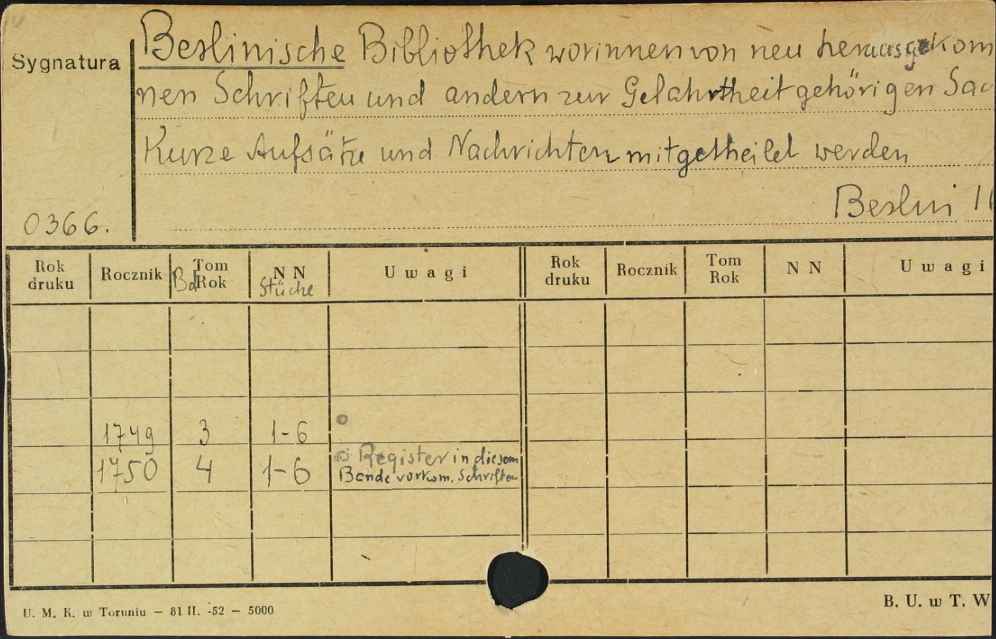 Sygnatura
Berlinische Bibliothek worinnen von neu herausgekom
nen Schriften und andern zur Gelahrtheit gehörigen Sac
Kurze Aufsätze und Nachrichten mitgetheilet werden
Berlin 1
0366.
Rok druku Rocznik Tom Bd Rok N N Stücke Uwagi Rok druku Rocznik Tom Rok N N Uwagi
1749 3 1-6
1750 4 1-6 Register in diesem
Bande vorkom. Schriften
U. M. K. w Toruniu — 81 II. -52 — 5000
B. U. w T. W